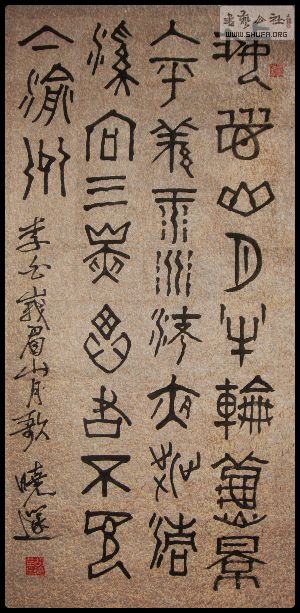 书艺公社
WWW.SHUFA.ORG
峨眉山月半輪秋景
入平羌江水流夜發清
溪向三峽思君不見
下渝州
李白峩眉山月歌 曉